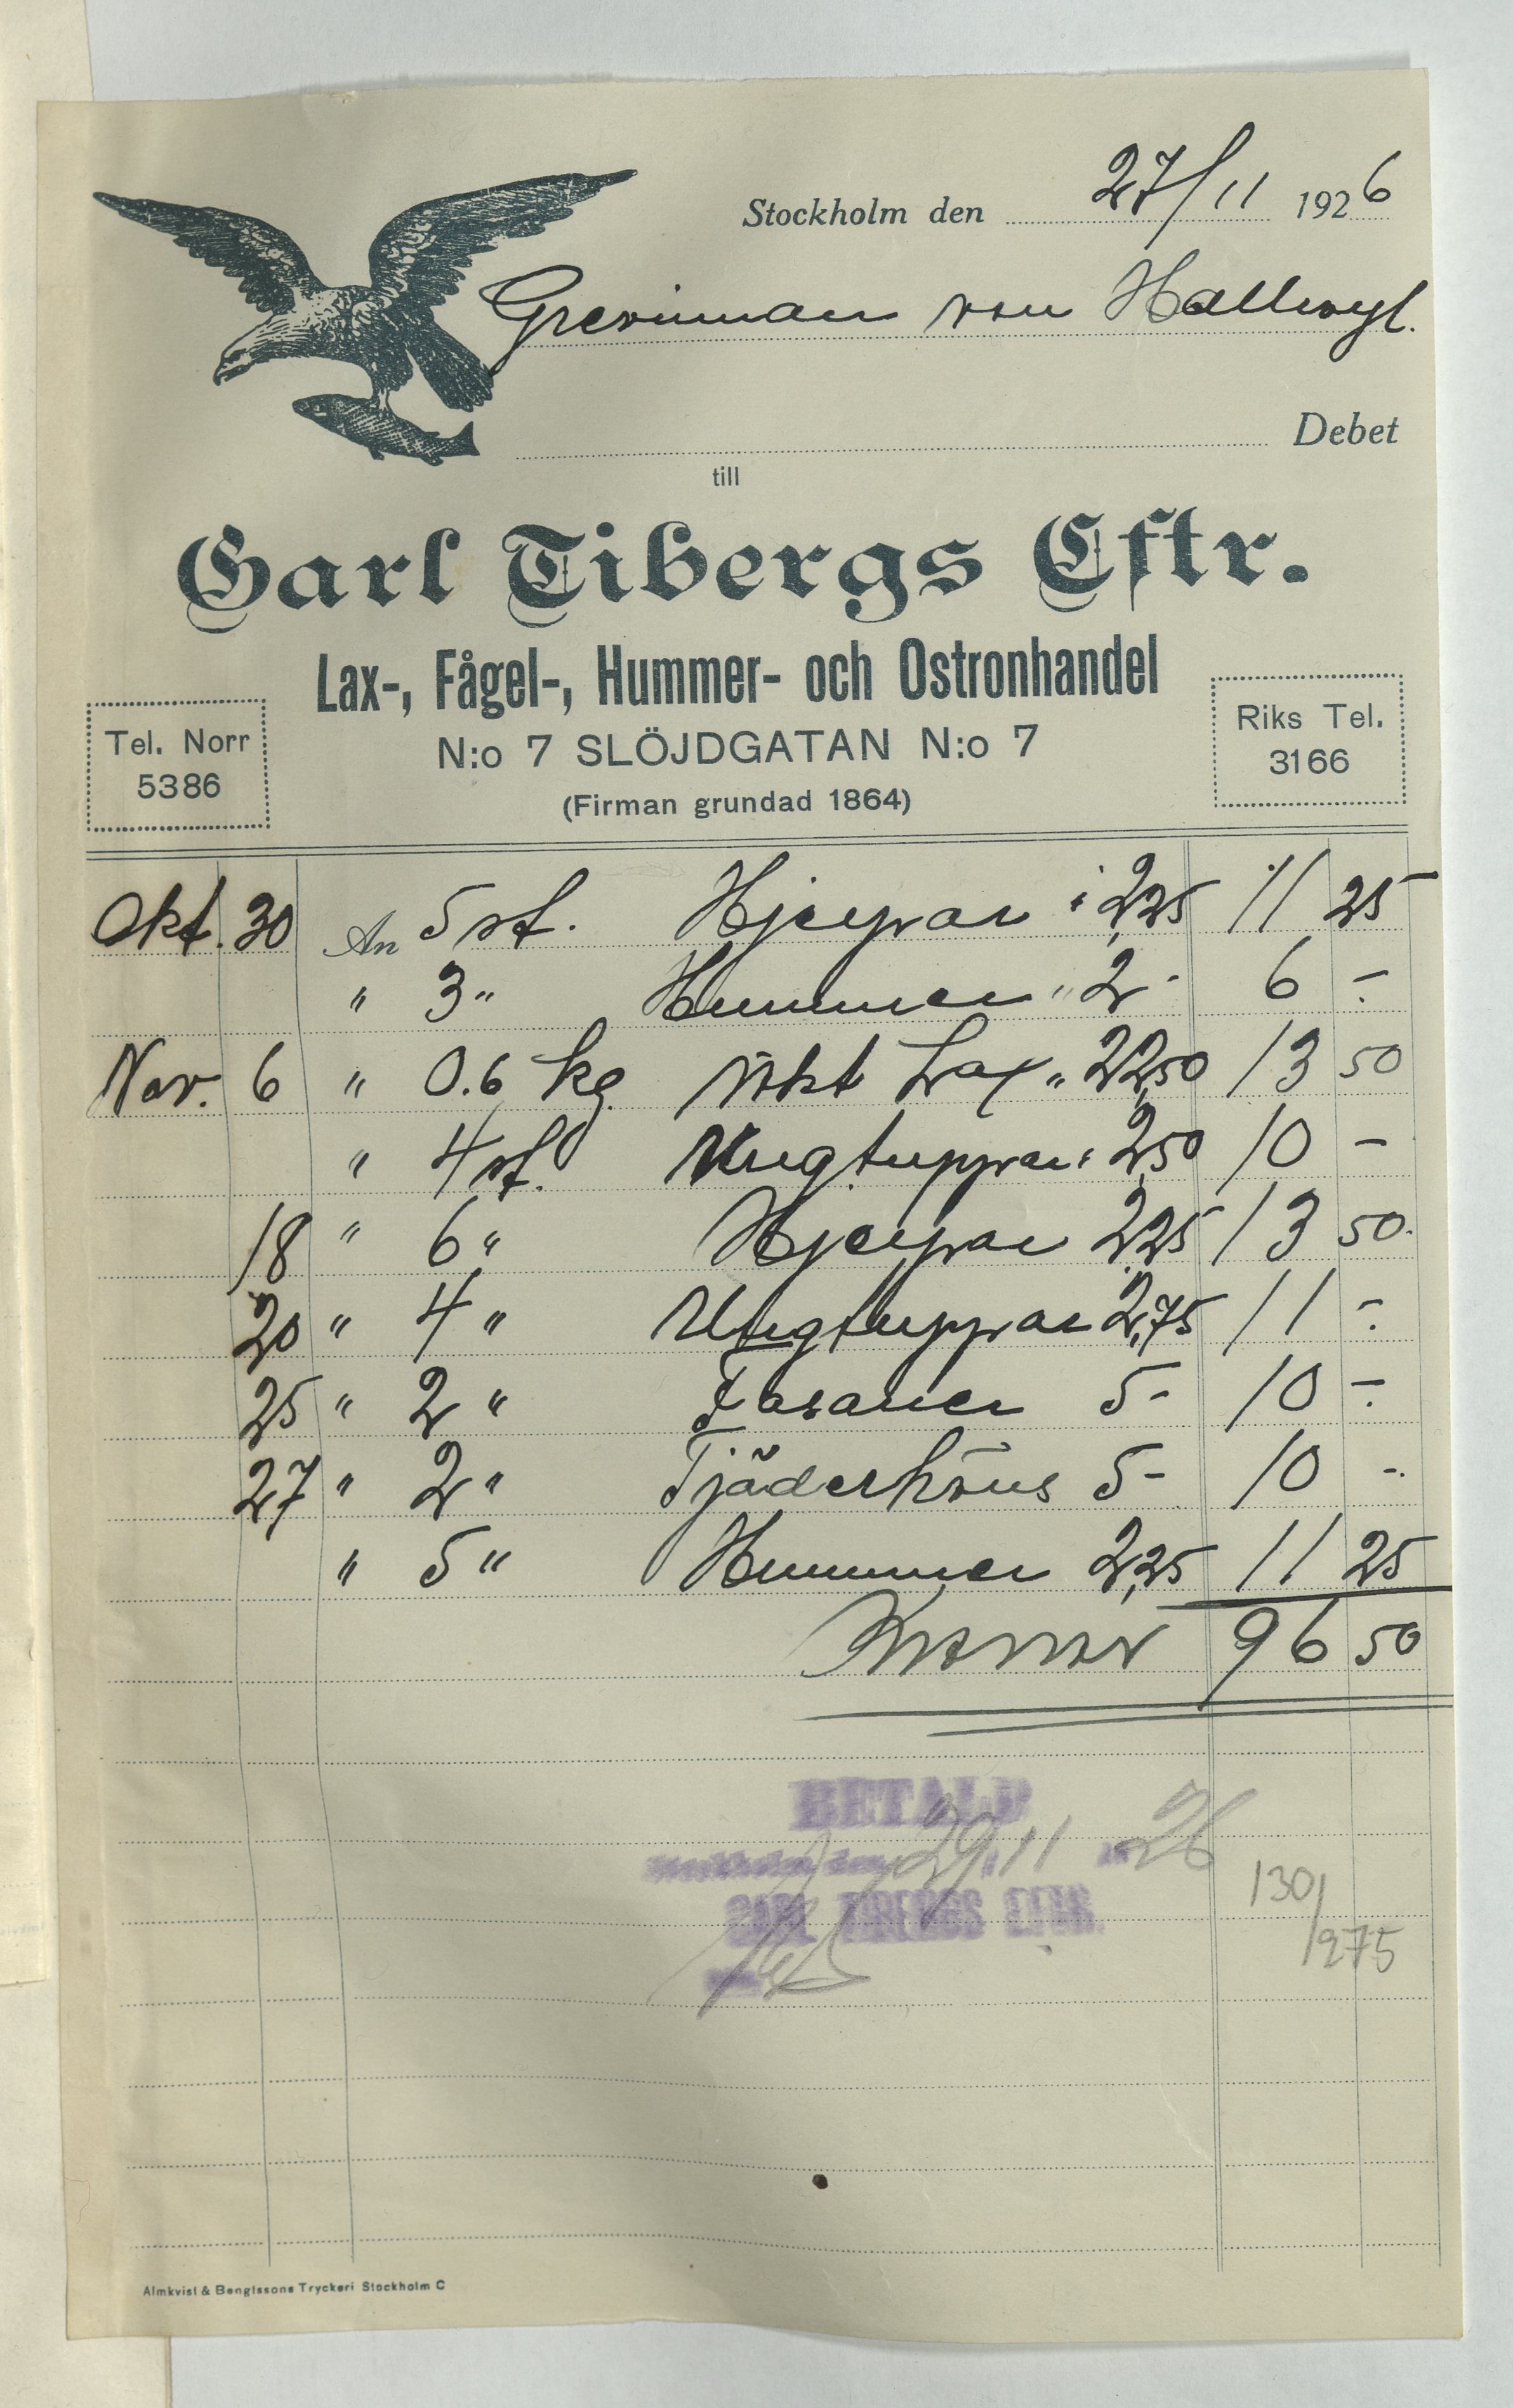 Stockholm den 27/11 1926
Grevinnan von Hallwyl.
Debet
till
Carl Tibergs Eftr.
Lax-, Fågel-, Hummer- och Ostronhandel
Tel. Norr
5386
N:o 7 SLÖJDGATAN N:o 7
(Firman grundad 1864)
Riks Tel.
3166
Okt. 30 An 5 st. Hjerpar à 2,25 11 25
" 3 " Hummer " 2- 6 -
Nov. 6 " 0.6 kg rökt Lax " 22,50 13 50
" 4 st. Ungtuppar " 2,50 10 -
18 " 6 " Hjerpar 2,25 13 50
20 " 4 " Ungtuppar 2,75 11 -
25 " 2 " Fasaner 5- 10 -
27 " 2 " Tjäderhöns 5- 10 -
" 5 " Hummer 2,25 11 25
Kronor 96 50
BETALD
Stockholm den 29/11 1926
CARL TIBERGS EFTR.
130/275
Almkvist & Bengtssons Tryckeri Stockholm C